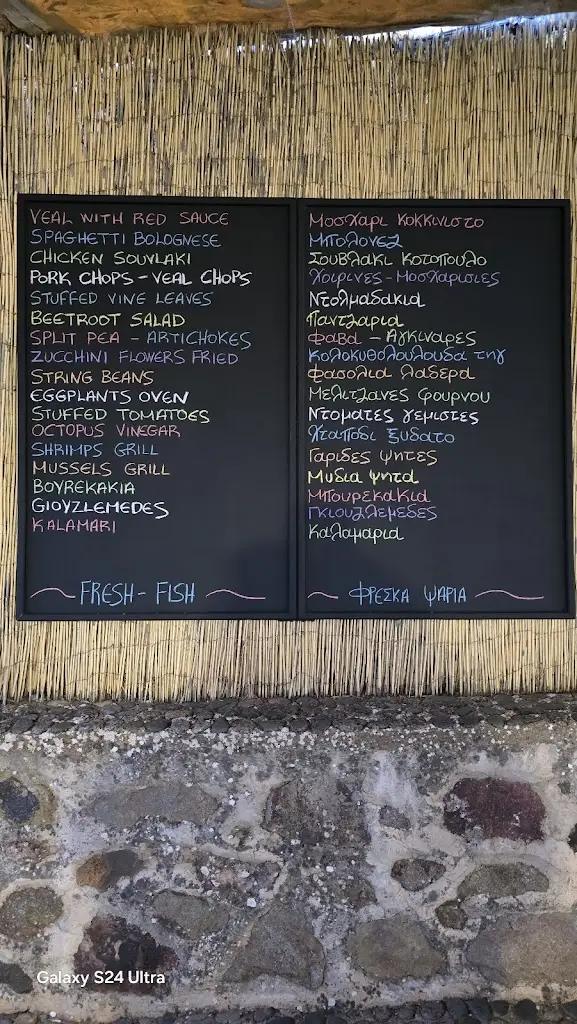 VEAL WITH RED SAUCE
SPAGHETTI BOLOGNESE
CHICKEN SOUVLAKI
PORK CHOPS - VEAL CHOPS
STUFFED VINE LEAVES
BEETROOT SALAD
SPLIT PEA - ARTICHOKES
ZUCCHINI FLOWERS FRIED
STRING BEANS
EGGPLANTS OVEN
STUFFED TOMATOES
OCTOPUS VINEGAR
SHRIMPS GRILL
MUSSELS GRILL
BOYREKAKIA
GIOYZLEMEDES
KALAMARI
FRESH - FISH
Μοσχαρι κοκκινιστο
Μπολονεζ
Σουβλακι κοτοπουλο
Χοιρινες - Μοσχαρισιες
Ντολμαδακια
Παντζαρια
Φαβα - Αγκιναρες
Κολοκυθολουλουδα τηγ
Φασολια λαδερα
Μελιτζανες φουρνου
Ντοματες γεμιστες
Χταποδι ξυδατο
Γαριδες ψητες
Μυδια ψητα
Μπουρεκακια
Γκιουζλεμεδες
Καλαμαρια
ΦΡΕΣΚΑ ΨΑΡΙΑ
Galaxy S24 Ultra